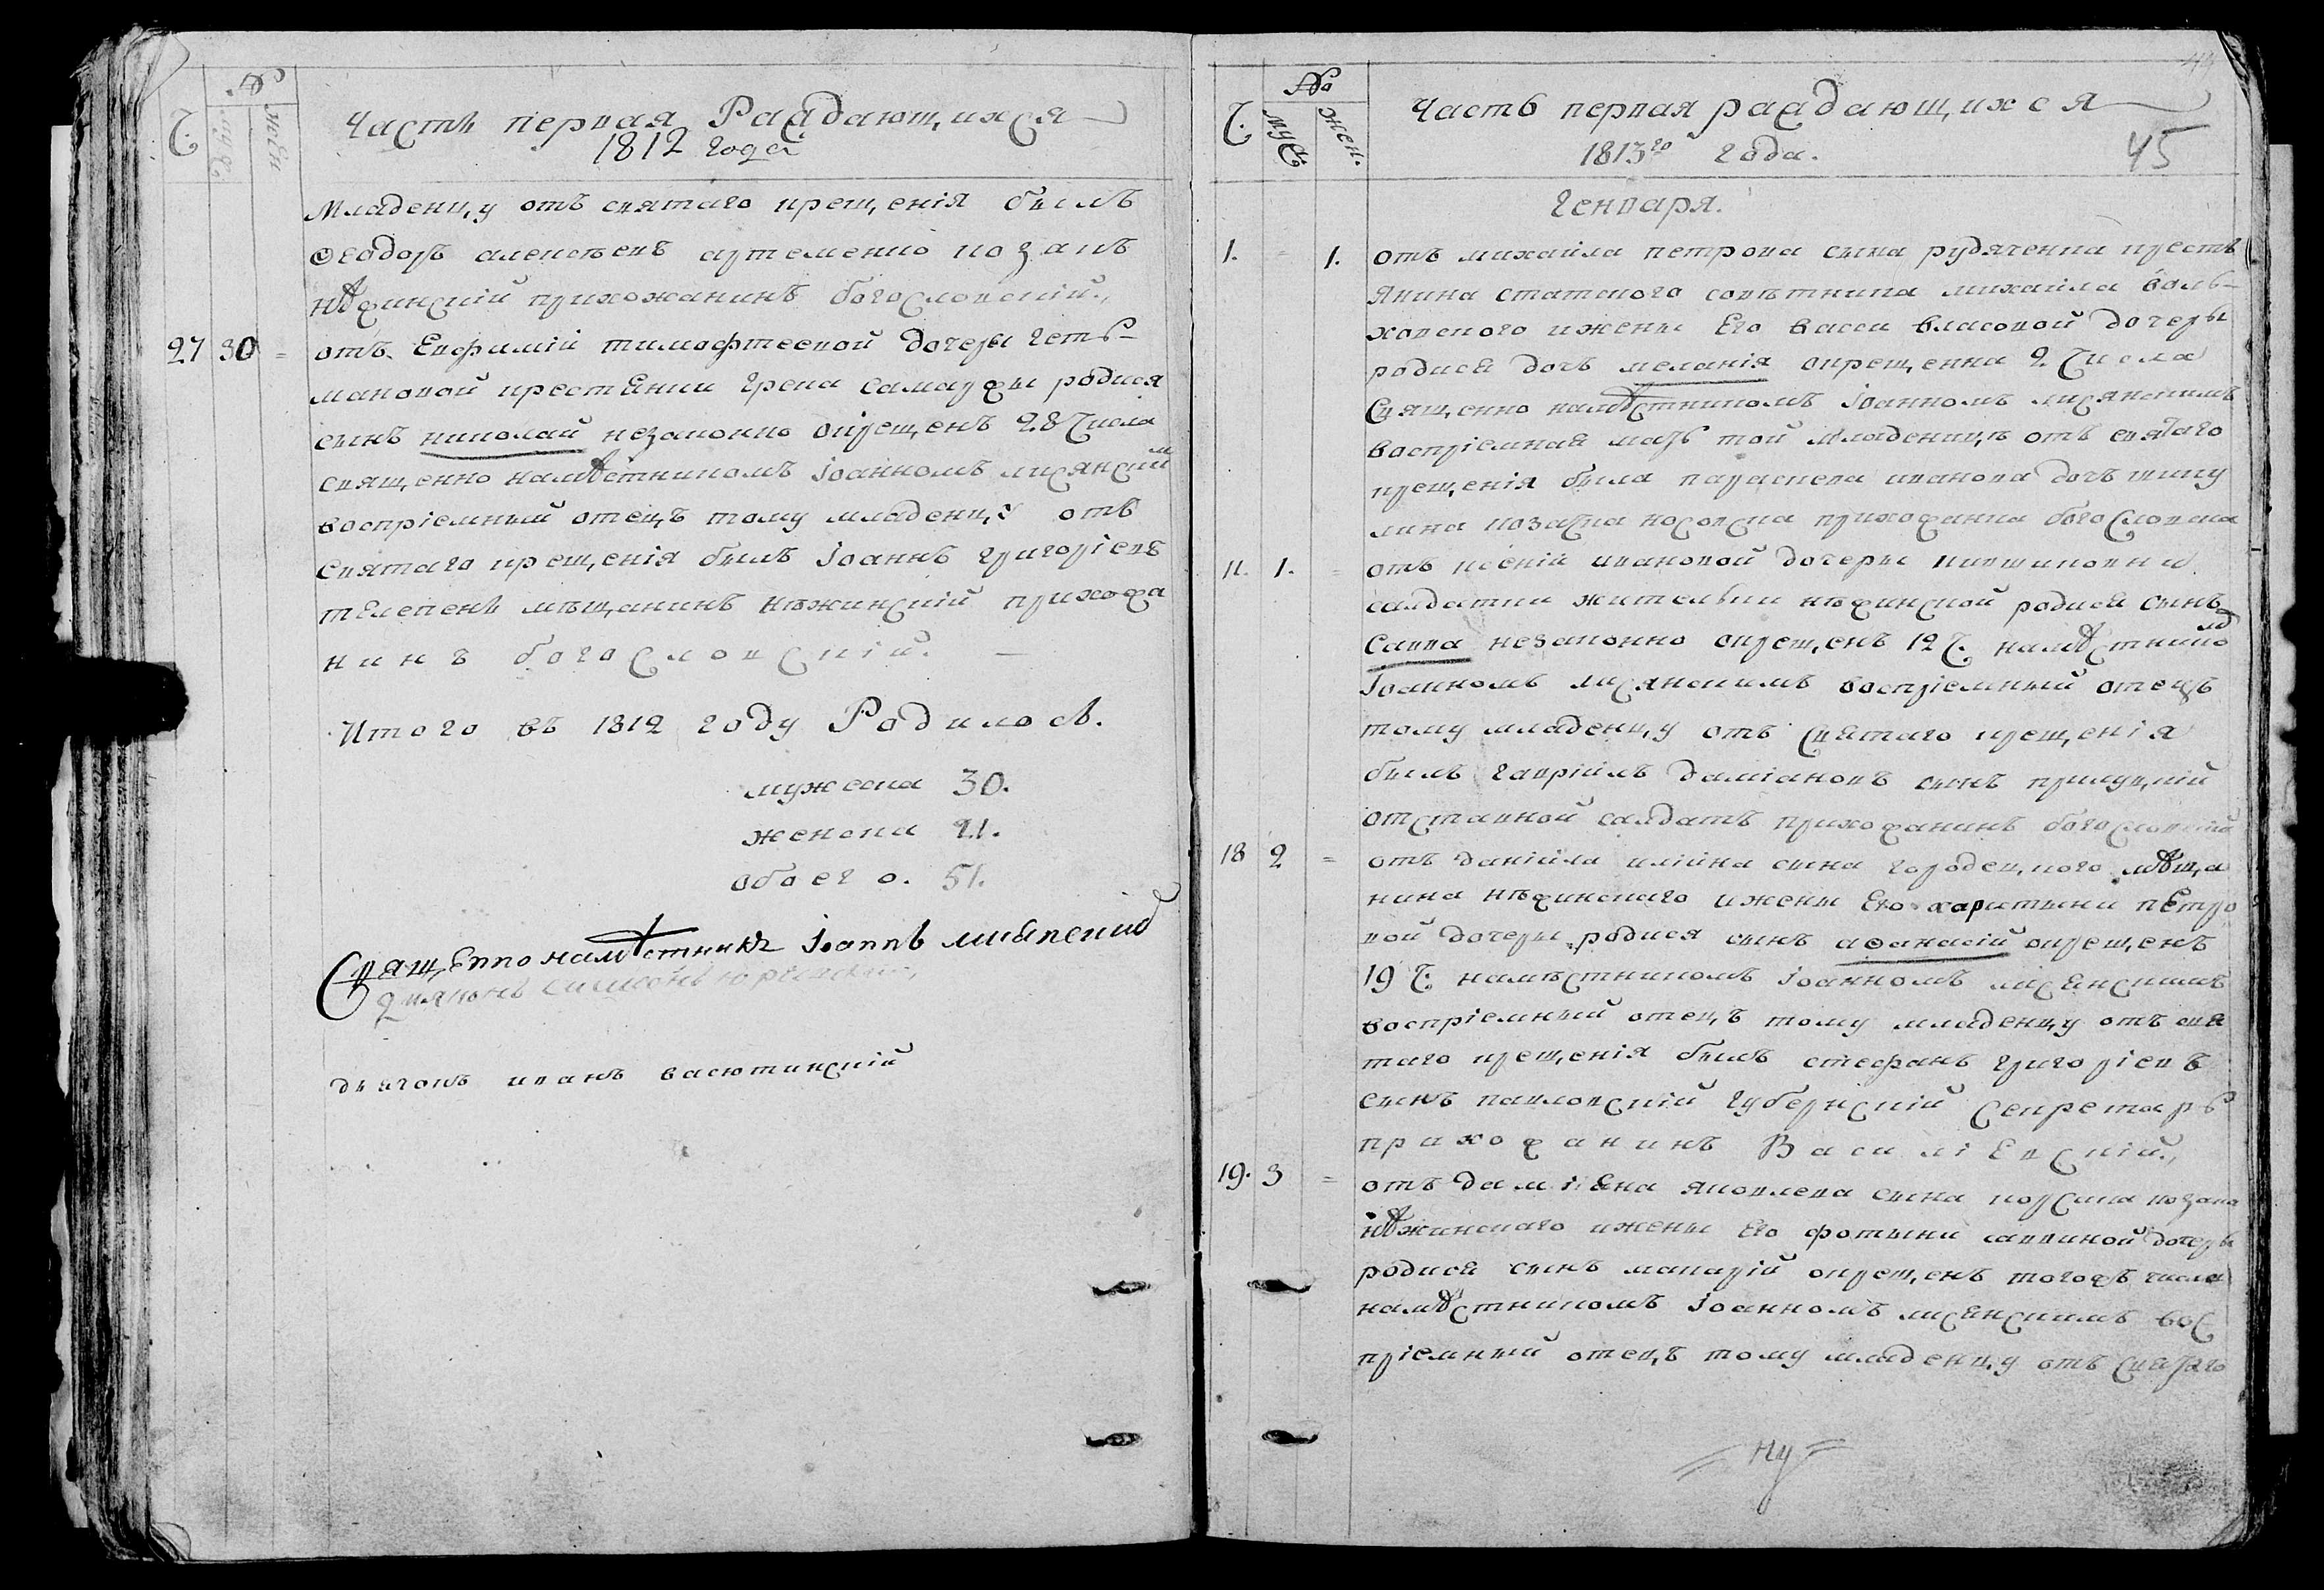 Ч.
№
муж.
жен
Часть первая Раждающихся
1812 года
Младенцу отъ святаго крещенія былъ
Ѳеодоръ алексѣевъ артеменко козакъ
нѣжинскій прихожанинъ богословскій.
27 30 = отъ Евфимій тимофтеевой дочеры гетъ-
мановой крестянки грека самары родися
сынъ николай незаконно окрещенъ 28 числа
священно намѣстникомъ іоанномъ лисянским
воспріемный отецъ тому младенцу отъ
святаго крещенія былъ іоаннъ григоріевъ
телепень мѣщанинъ нѣжинскій прихожа
нинъ богословскій. —
Итого въ 1812 году Родилось.
мужеска 30.
женска 21.
обоего. 51.
Священно намѣстникъ іоаннъ лисянский
диаконъ симеонъ
дячокъ иванъ васютинскій
Ч.
№
муж.
жен.
часть первая раждающихся
1813го года.
45
генваря.
1. = 1. отъ михаила петрова сына рудяченка крестъ
янина статского совѣтника михаила воль-
ховского и жены Его васси власовой дочеры
родися дочъ меланія окрещенна 2 числа
Священно намѣстникомъ іоанномъ лисянскимъ
воспріемная мать той младеницѣ отъ святаго
крещенія была параскева иванова дочъ шику
лина козачка носовска прихожанка богословска
11. 1. = отъ ксеній ивановой дочеры
салдатки жителки нѣжинской родися сынъ
Савва незаконно окрещенъ 12 ч. намѣстником
іоанномъ лисянскимъ воспріемный отецъ
тому младенцу отъ святаго крещенія
былъ гавріилъ даміановъ сынъ прилуцкій
отставной салдатъ прихожанинъ богословскій
18 2 = отъ даніила илійна сына городецкого мѣща
нина нѣжинскаго и жены Его харитыни петро
вой дочеры родися сынъ аѳанасій окрещенъ
19 ч. намѣстникомъ іоанномъ лисянскимъ
воспріемный отецъ тому младенцу отъ свя
таго крещенія былъ стефанъ григоріевъ
сынъ павловскій губернскій секретаръ
прихожанинъ Василіевскій.
19. 3 = отъ даміяна яковлева сына корсика козака
нѣжинскаго и жены Его фотыни саввиной дочеры
родися сынъ макарій окрещенъ тогожъ числа
намѣстникомъ іоанномъ лисянскимъ вос
пріемный отецъ тому младенцу отъ святаго